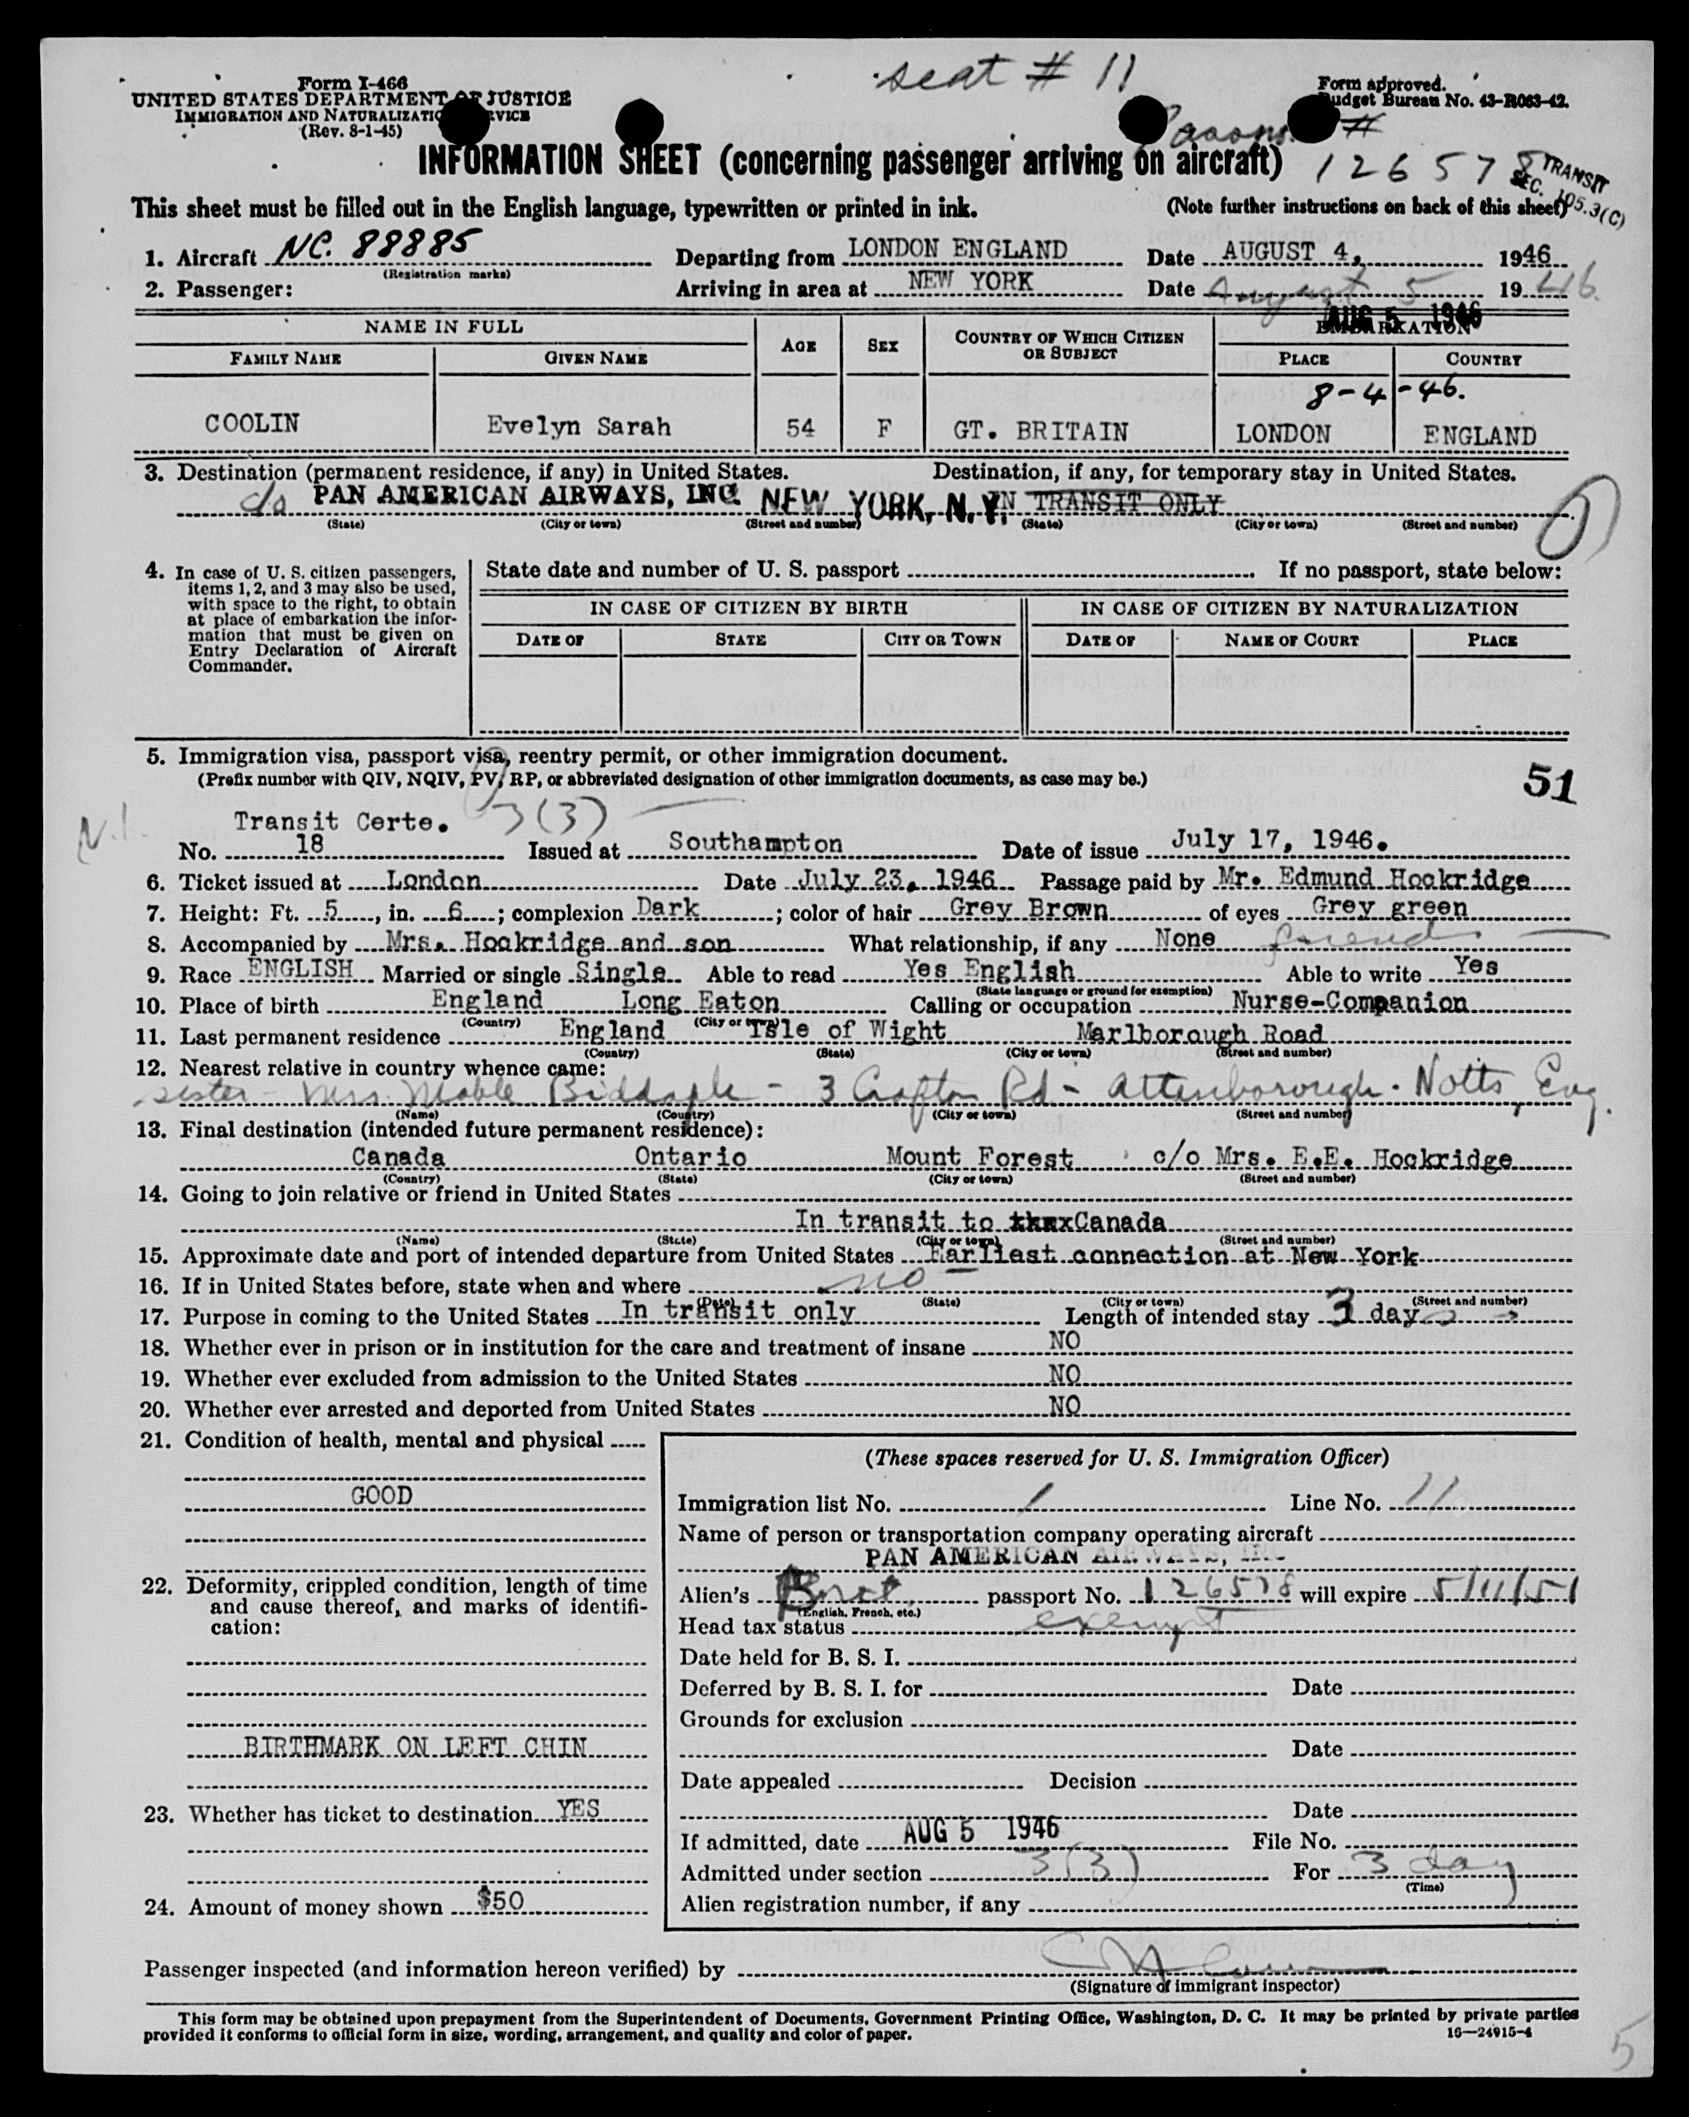 seat # 11
Form I-466
UNITED STATES DEPARTMENT OF JUSTICE
IMMIGRATION AND NATURALIZATION SERVICE
(Rev. 8-1-45)
Form approved.
Budget Bureau No. 43-R063-42.
INFORMATION SHEET (concerning passenger arriving on aircraft)
#
126578
TRANSIT
SEC. 105.3(C)
This sheet must be filled out in the English language, typewritten or printed in ink. (Note further instructions on back of this sheet)
1. Aircraft NC. 88885 Departing from LONDON ENGLAND Date AUGUST 4, 1946
(Registration marks)
2. Passenger: Arriving in area at NEW YORK Date August 5 1946.
AUG 5 1946
NAME IN FULL AGE SEX COUNTRY OF WHICH CITIZEN OR SUBJECT EMBARKATION
FAMILY NAME GIVEN NAME PLACE COUNTRY
8-4-46.
COOLIN Evelyn Sarah 54 F GT. BRITAIN LONDON ENGLAND
3. Destination (permanent residence, if any) in United States. Destination, if any, for temporary stay in United States.
c/o PAN AMERICAN AIRWAYS, INC. NEW YORK, N.Y. IN TRANSIT ONLY
(State) (City or town) (Street and number) (State) (City or town) (Street and number)
4. In case of U. S. citizen passengers, items 1, 2, and 3 may also be used, with space to the right, to obtain at place of embarkation the information that must be given on Entry Declaration of Aircraft Commander.
State date and number of U. S. passport If no passport, state below:
IN CASE OF CITIZEN BY BIRTH IN CASE OF CITIZEN BY NATURALIZATION
DATE OF STATE CITY OR TOWN DATE OF NAME OF COURT PLACE
5. Immigration visa, passport visa, reentry permit, or other immigration document.
(Prefix number with QIV, NQIV, PV, RP, or abbreviated designation of other immigration documents, as case may be.)
51
N.I.
Transit Certe. 3(3)
No. 18 Issued at Southampton Date of issue July 17, 1946.
6. Ticket issued at London Date July 23, 1946 Passage paid by Mr. Edmund Hockridge
7. Height: Ft. 5, in. 6; complexion Dark; color of hair Grey Brown of eyes Grey green
8. Accompanied by Mrs. Hockridge and son What relationship, if any None friend
9. Race ENGLISH Married or single Single Able to read Yes English Able to write Yes
(State language or ground for exemption)
10. Place of birth England Long Eaton Calling or occupation Nurse-Companion
(Country) (City or town)
11. Last permanent residence England Isle of Wight Marlborough Road
(Country) (State) (City or town) (Street and number)
12. Nearest relative in country whence came:
sister - Mrs. Mable - 3 Crofton Rd - Attenborough - Notts, Eng.
(Name) (Country) (City or town) (Street and number)
13. Final destination (intended future permanent residence):
Canada Ontario Mount Forest c/o Mrs. E.E. Hockridge
(Country) (State) (City or town) (Street and number)
14. Going to join relative or friend in United States
In transit to Canada
(Name) (State) (City or town) (Street and number)
15. Approximate date and port of intended departure from United States Earliest connection at New York
16. If in United States before, state when and where no
(Date) (State) (City or town) (Street and number)
17. Purpose in coming to the United States In transit only Length of intended stay 3 days
18. Whether ever in prison or in institution for the care and treatment of insane NO
19. Whether ever excluded from admission to the United States NO
20. Whether ever arrested and deported from United States NO
21. Condition of health, mental and physical
GOOD
22. Deformity, crippled condition, length of time and cause thereof, and marks of identification:
BIRTHMARK ON LEFT CHIN
23. Whether has ticket to destination YES
24. Amount of money shown $50
(These spaces reserved for U. S. Immigration Officer)
Immigration list No. 1 Line No. 11
Name of person or transportation company operating aircraft
PAN AMERICAN AIRWAYS, INC.
Alien's Brit. passport No. 126578 will expire 5/11/51
(English, French, etc.)
Head tax status exempt
Date held for B. S. I.
Deferred by B. S. I. for Date
Grounds for exclusion
Date
Date appealed Decision
Date
If admitted, date AUG 5 1946 File No.
Admitted under section 3(3) For 3 day
(Time)
Alien registration number, if any
Passenger inspected (and information hereon verified) by
(Signature of immigrant inspector)
This form may be obtained upon prepayment from the Superintendent of Documents, Government Printing Office, Washington, D. C. It may be printed by private parties
provided it conforms to official form in size, wording, arrangement, and quality and color of paper. 16—24915-4
5